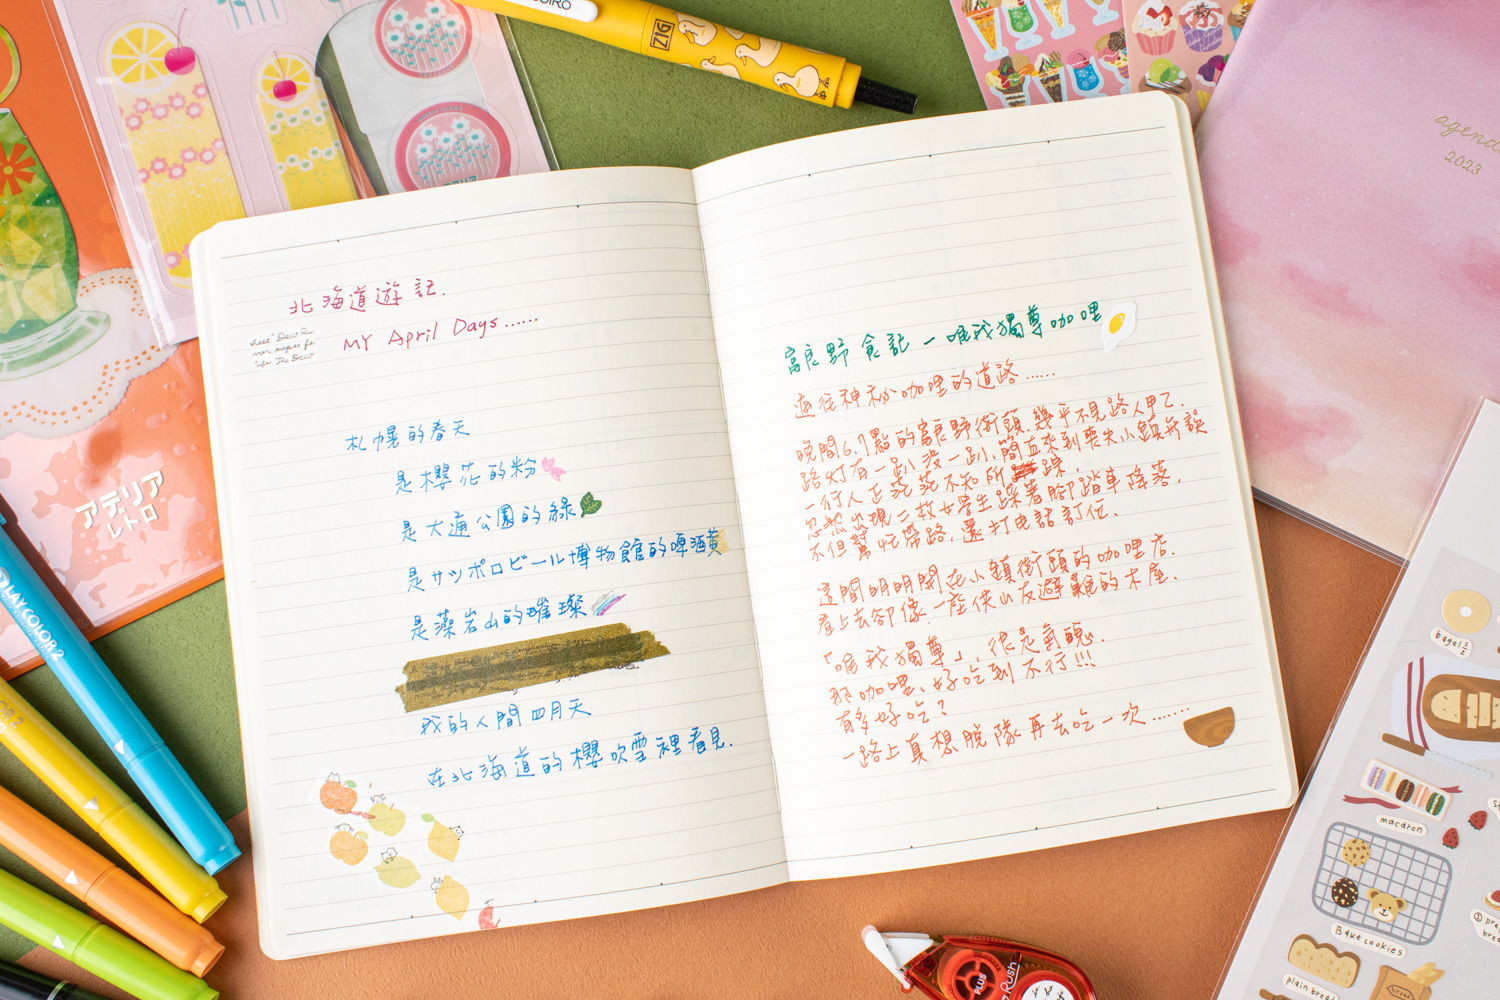 北海道遊記.
MY April Days......
札幌的春天
是櫻花的粉
是大通公園的綠
是サッポロビール博物館的啤酒黃
是藻岩山的璀璨
我的人間四月天
在北海道的櫻吹雪裡看見.
富良野食記－唯我獨尊咖哩
通往神秘咖哩的道路......
晚間6.7點的富良野街頭.幾乎不見路人甲乙.
路灯有一趴沒一趴.簡直來到喪失小鎮.所誤
一行人正茫茫不知所 踩.
忽然出現二枚女學生踩著腳踏車降落.
不但幫忙帶路,還打电話訂位.
這間明明開在小鎮街頭的咖哩店.
看上去卻像一座供山友避難的木屋.
「唯我獨尊」,很是氣魄.
那咖哩、好吃到不行!!!
有多好吃?
一路上真想脫隊再去吃一次......
agenda
2023
アデリア
レトロ
PLAY COLOR 2
bagel
macaron
Bake cookies
plain bread
PLUS
Rush